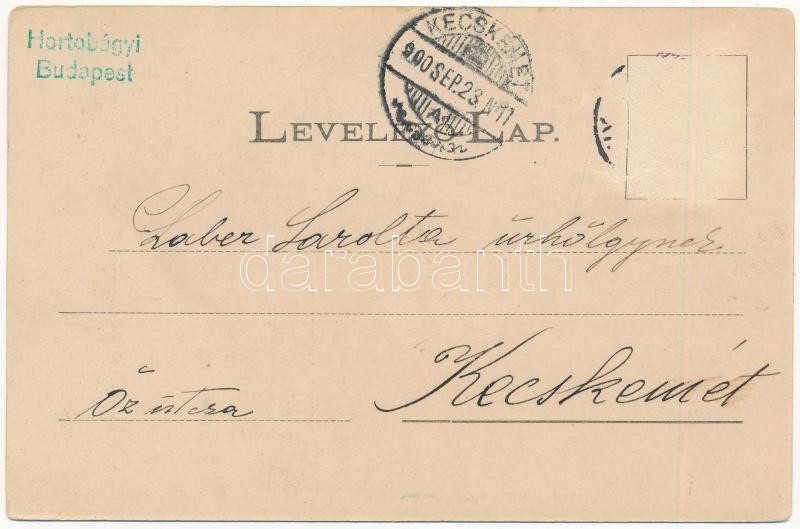 Hortobágyi
Budapest
KECSKEMÉT
900 SEP. 23. N11
LEVELEZŐ-LAP.
Laber Sarolta úrhölgynek
darabanth
Kecskemét
Őz utcza